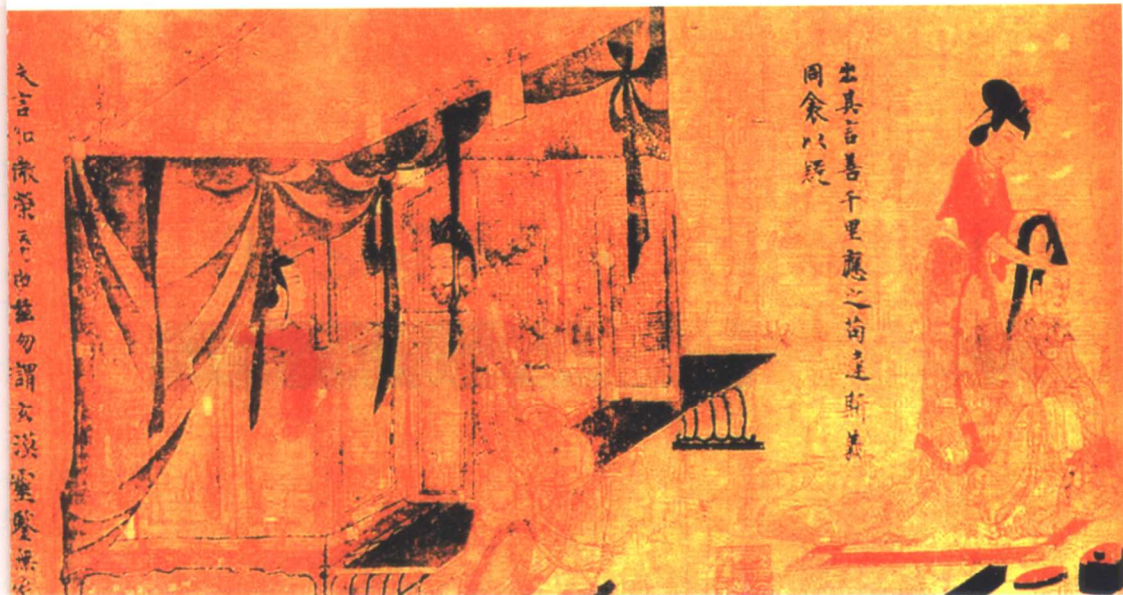 出其言善千里應之苟違斯義
同衾以疑
夫言如微榮辱由茲勿謂玄漠靈鑒無